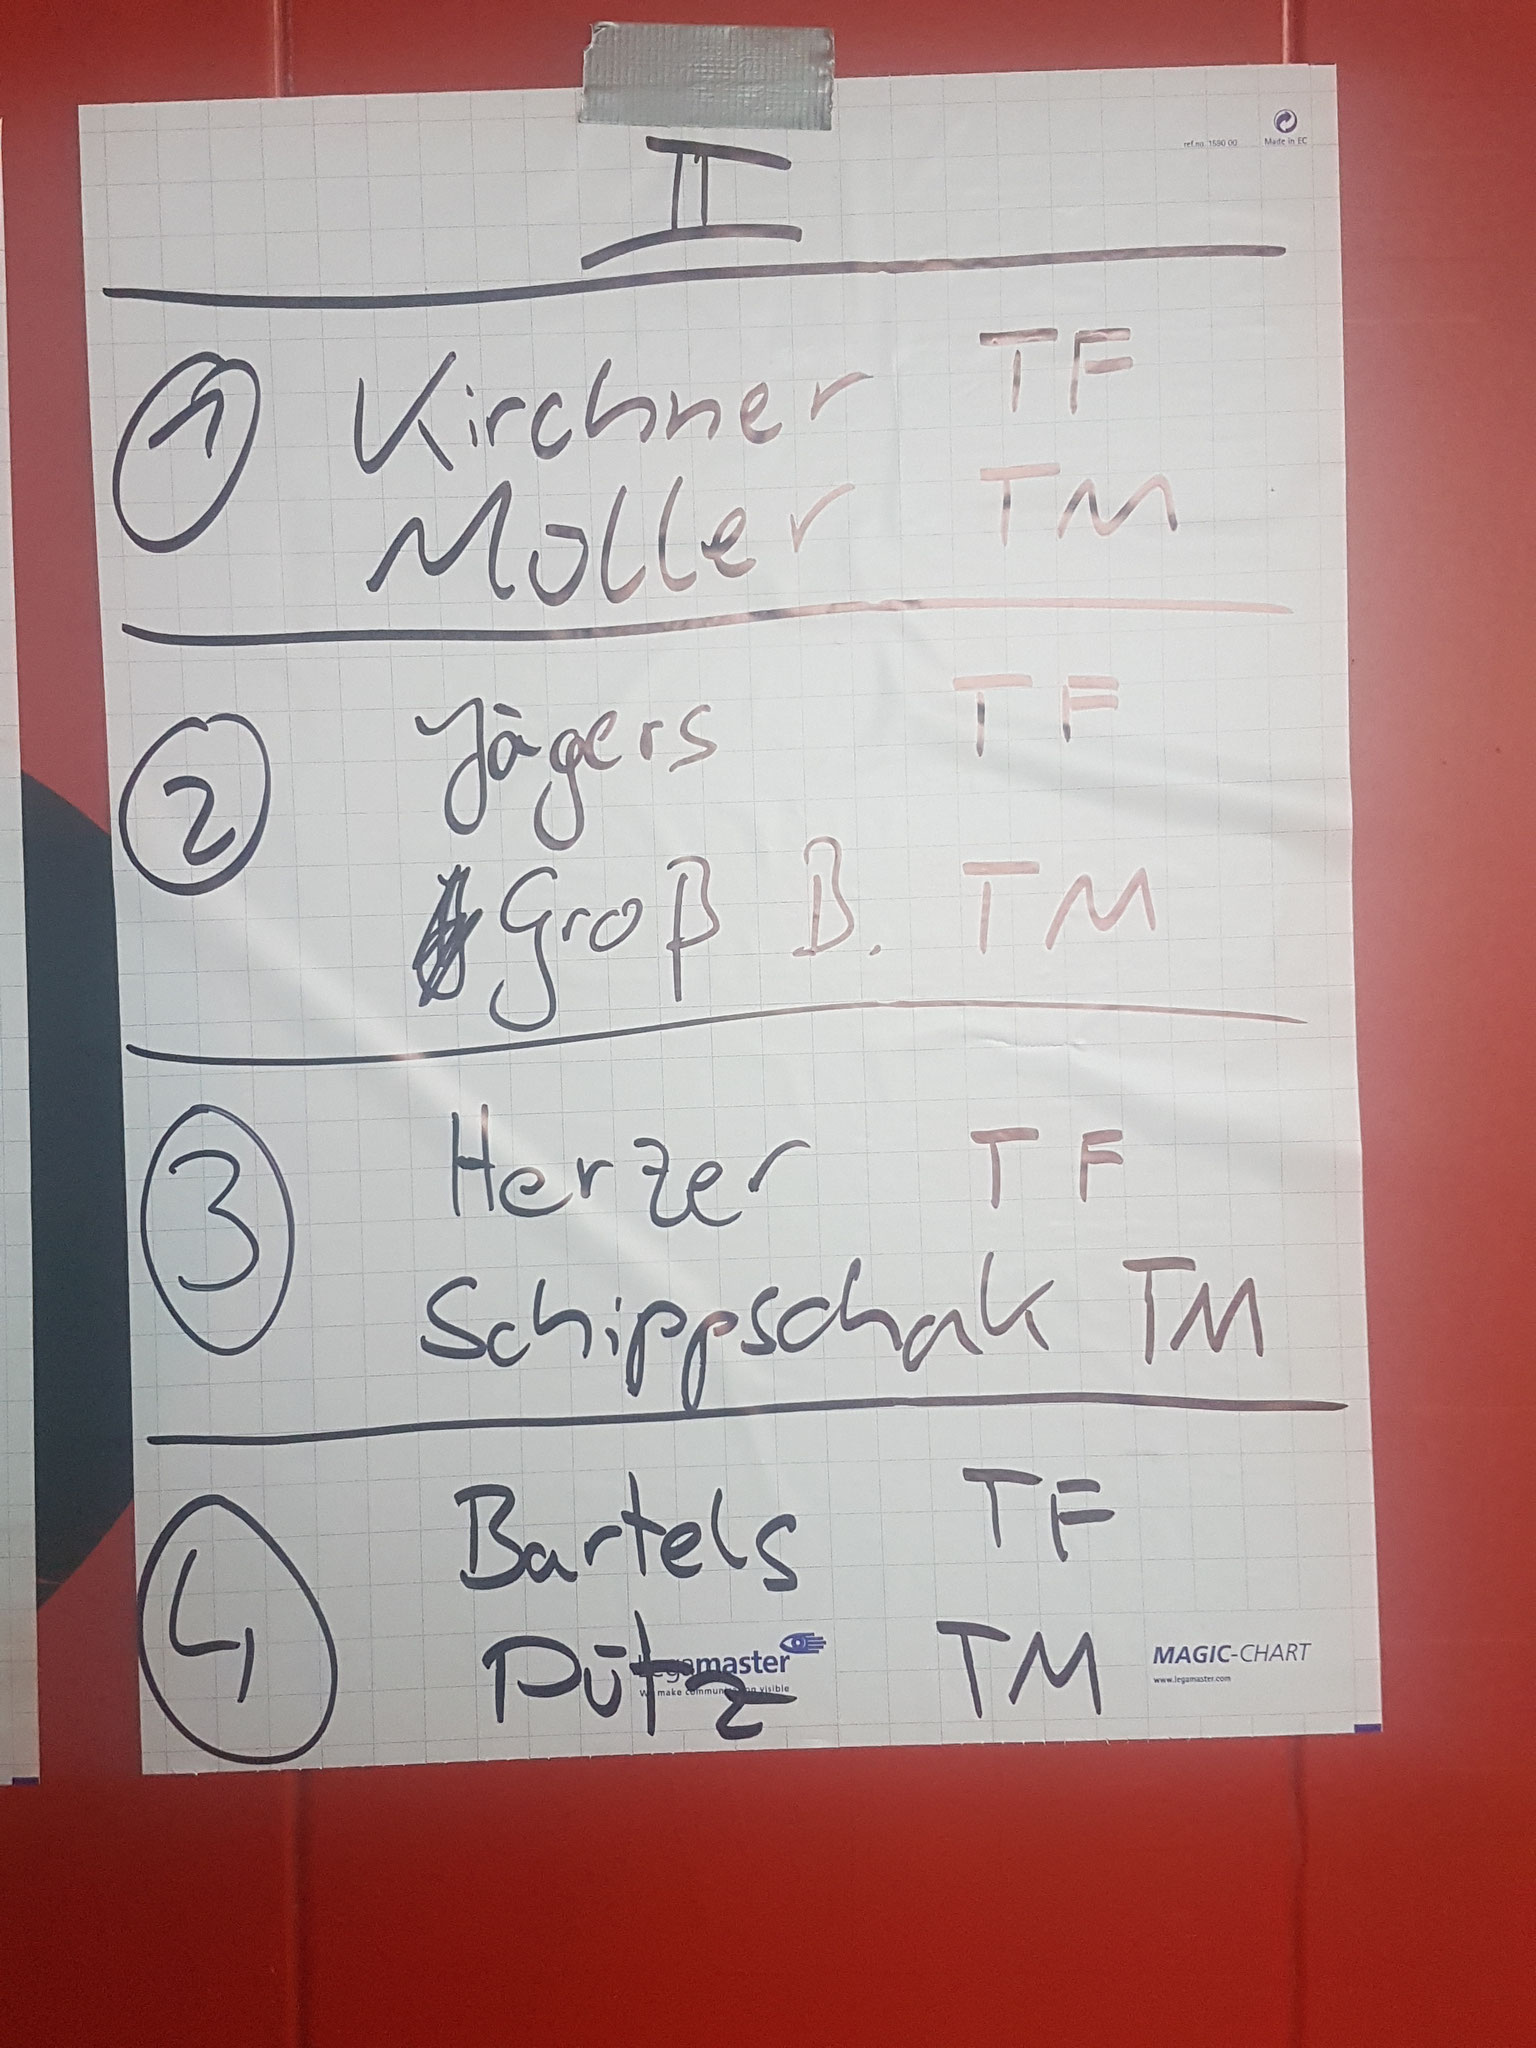 ref.no. 1580 00 Made in EC
II
1 Kirchner TF
Moller TM
2 Jägers TF
Groß B. TM
3 Herzer TF
Schippschak TM
4 Bartels TF
Pütz TM
Legamaster
We make communication visible
MAGIC-CHART
www.legamaster.com